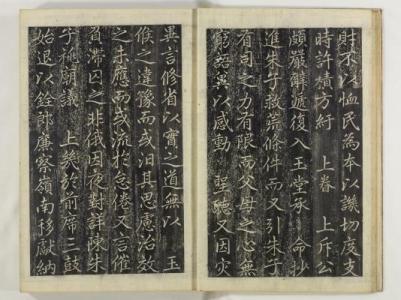 財不以恤民為本以譏切度支
時許積方紆　上眷　上斥公
頗嚴解遞復入玉堂承　命抄
進朱子救荒條件而又引朱子
有司之力有限而父母之心無
窮語冀以感動　聖聽又因灾
異言修省以實之道無以　玉
候之違豫而或汨其思慮治效
之未應而或流於怠倦又言催
督滯囚之非俄因夜對詳陳朱
子祧廟議　上幾於前席三鼓
始退以銓郎廉察嶺南移獻納